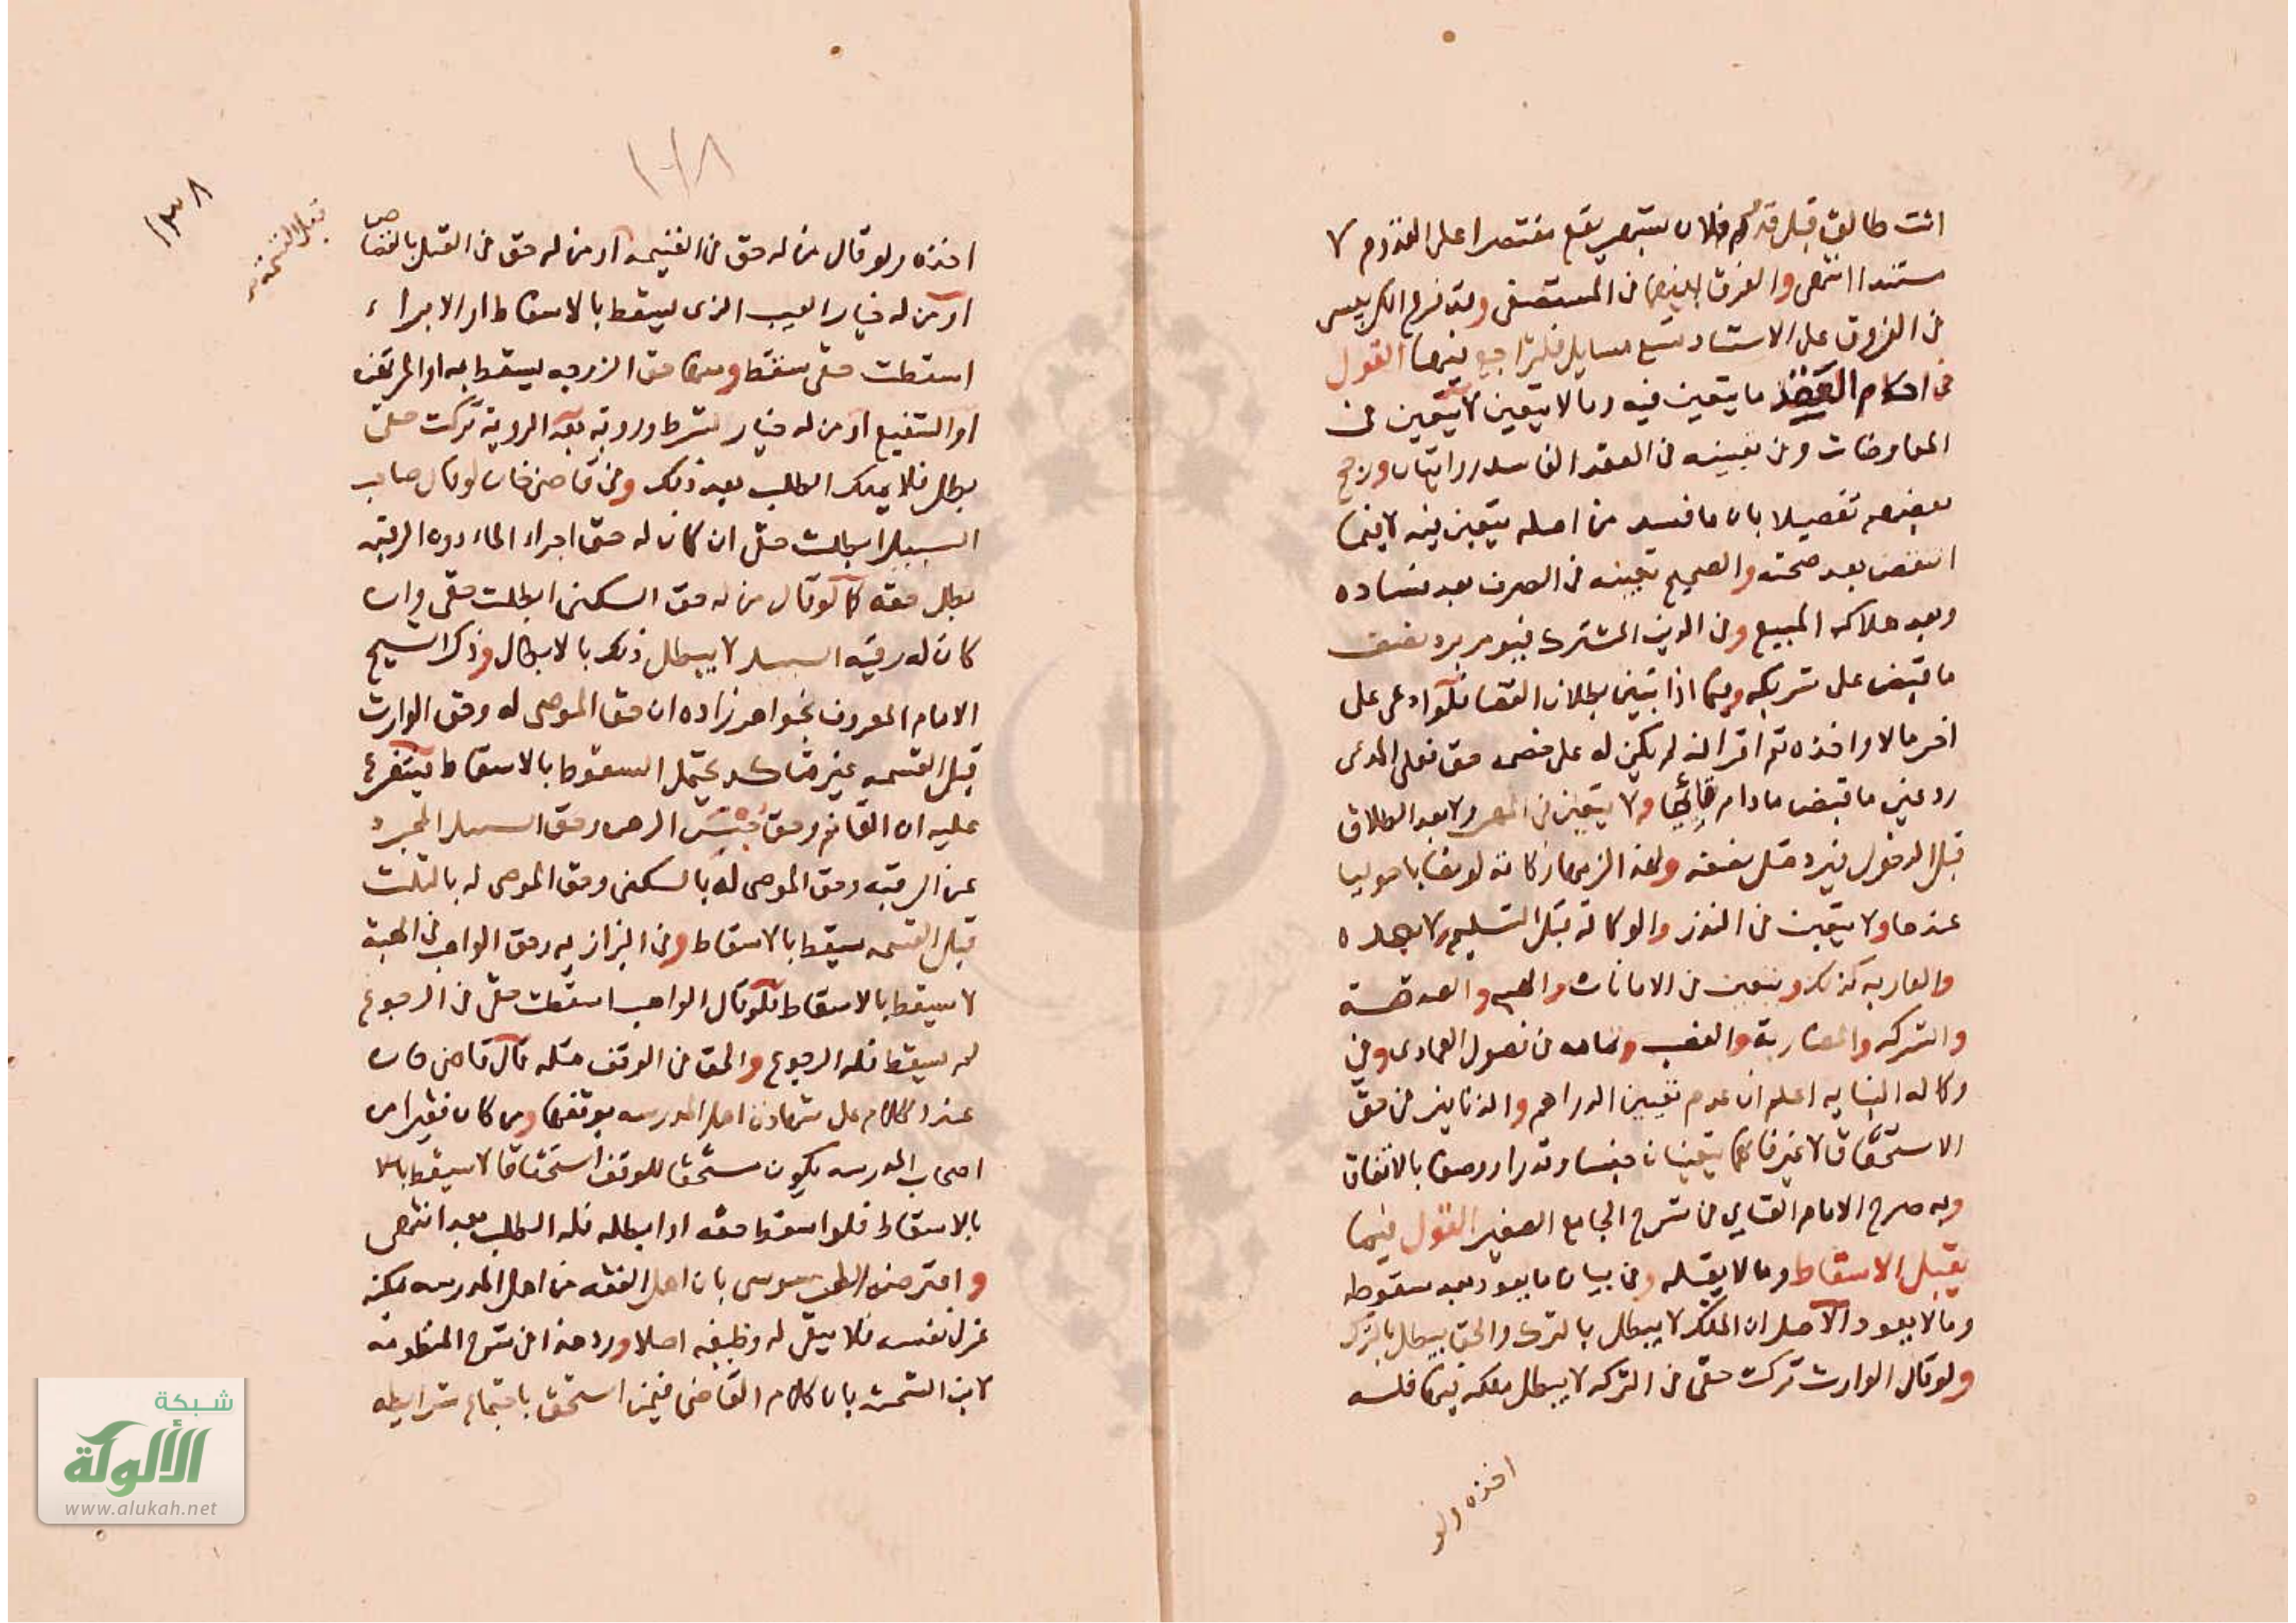 انت طالق قبل قدوم فلان بشهر يقع مقتصرا على القدوم لا
مستندا انتهى والفرق بينهما في المستصفى وقد فرع الكرابيسي
في الفروق على الاستناد تسع مسايل فليراجع فيها القول
في احكام النقد ما يتعين فيه وما لا يتعين لا يتعين في
المعاوضات وفي تعيينه في العقد الفاسد روايتان ورجح
بعضهم تفصيلا بان ما فسد من اصله يتعين فيه لا فيما
انتقض بعد صحته والصحيح تعيينه في الصرف بعد فساده
وبعد هلاك المبيع وفي الدين المشترك فيؤمر برد نصف
ما قبض على شريكه وفيما اذا تبين بطلان القضا فلو ادعى على
اخر مالا واخذه ثم اقر انه لم يكن له على خصمه حق فعلى المدعى
رد عين ما قبض ما دام قائما ولا يتعين في المهر ولا بعد الطلاق
قبل الدخول فيرد مثل نصفه ولهذا لزمها زكاته لو نصابا حوليا
عندها ولا يتعين في النذر والوكالة قبل التسليم ولا بعده
والعارية كذلك ويتعين في الامانات والهبة والصدقة
والشركة والمضاربة والغصب وتمامه في فصول العمادى وفي
وكالة النهايه اعلم ان عدم تعيين الدراهم والدنانير في حق
الاستحقاق لا غير فانهما يتعينان جنسا وقدرا ووصفا بالاتفاق
وبه صرح الامام العتابي في شرح الجامع الصغير القول فيما
يقبل الاسقاط وما لا يقبله وفي بيان ما يعود بعد سقوطه
وما لا يعود والاصل ان الملك لا يبطل بالترك والحق يبطل بالترك
ولو قال الوارث تركت حقى في التركه لا يبطل ملكه فيما قلت
اخذه ولو
١٣٨
١٣٨
اخذه ولو قال من له حق في الغنيمه او من له حق في القتل بالقصاص
او من له خيار العيب الذى يسقط بالاسقاط او الابراء
اسقطت حقى سقط ومنها حق الزوجه يسقط به او المرتهن
او الشفيع او من له خيار الشرط ورويه بعد الروية تركت حقى
بطل فلا يملك الطلب بعد ذلك وفي قاضى خان لو قال صاحب
السبيل ابطلت حقى ان كان له حق اجراء الماء دون الرقبه
بطل حقه كما لو قال من له حق السكنى ابطلت حقى وان
كان له رقبة السيل لا يبطل ذلك بالابطال وذكر الشيخ
الامام المعروف بخواهرزاده ان حق الموصى له وحق الوارث
قبل القسمه غير متاكد يحتمل السقوط بالاسقاط فيتفرع
عليه ان الغانم وحق حبس الرهن وحق السيل المجرد
عن الرقبه وحق الموصى له بالسكنى وحق الموصى له بالثلث
قبل القسمه يسقط بالاسقاط وفي البزازيه وحق الواهب في الهبة
لا يسقط بالاسقاط فلو قال الواهب اسقطت حقى في الرجوع
لم يسقط فله الرجوع والحق في الوقف مثله قال قاضى خان
عند الكلام على شهادة اهل المدرسه بوقفها ومن كان فقيرا من
اصحاب المدرسه يكون مستحقا للوقف استحقاقا لا يسقط بالا
بالاسقاط فلو اسقط حقه او ابطله فله الطلب بعد انتهى
واعترض الطرسوسى بان اهل الفقه من اهل المدرسه يمكنه
عزل نفسه فلا يبقى له وظيفه اصلا ورد هذا في شرح المنظومه
لابن الشحنه بان كلام القاضى فيمن استحق باجتماع شرايطه
شبكة
الألوكة
www.alukah.net